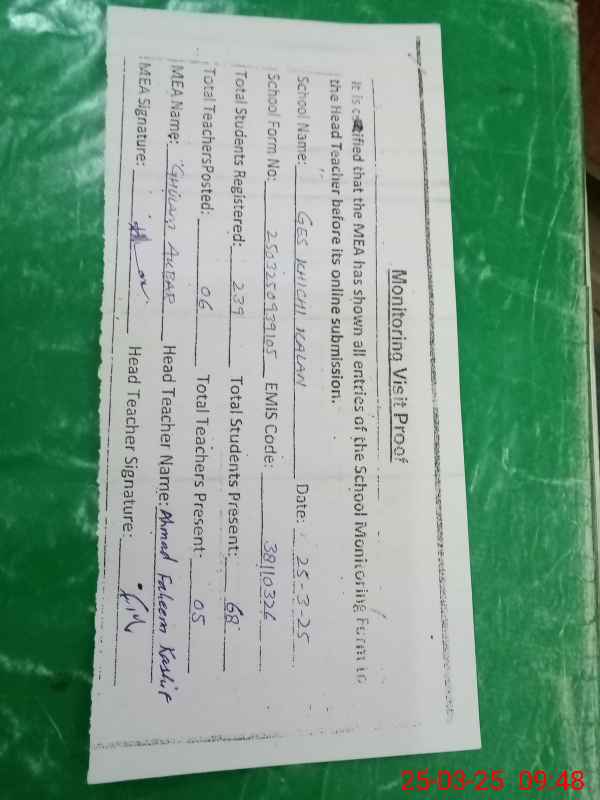 Monitoring Visit Proof
It is certified that the MEA has shown all entries of the School Monitoring Form to
the Head Teacher before its online submission.
School Name: GES KHICHI KALAN Date: 25-3-25
School Form No: 2503250939105 EMIS Code: 38110326
Total Students Registered: 239 Total Students Present: 68
Total TeachersPosted: 06 Total Teachers Present: 05
MEA Name: GHULAM AKBAR Head Teacher Name: Ahmad Faheem Kashif
MEA Signature: Head Teacher Signature:
25-03-25 09:48